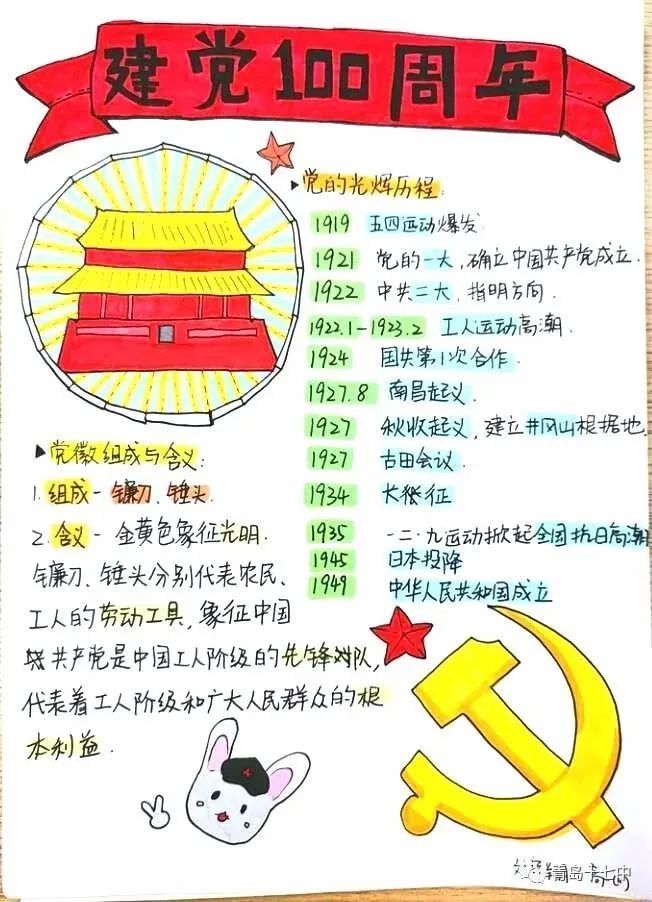 建党100周年
党的光辉历程:
1919 五四运动爆发
1921 党的一大,确立中国共产党成立.
1922 中共二大,指明方向.
1922.1-1923.2 工人运动高潮.
1924 国共第1次合作.
1927.8 南昌起义
1927 秋收起义,建立井冈山根据地.
1927 古田会议.
1934 长征
1935 一二·九运动掀起全国抗日高潮
1945 日本投降
1949 中华人民共和国成立
党徽组成与含义:
1.组成-镰刀、锤头.
2.含义-金黄色象征光明.
镰刀、锤头分别代表农民、
工人的劳动工具,象征中国
共产党是中国工人阶级的先锋队,
代表着工人阶级和广大人民群众的根
本利益.
青岛十七中